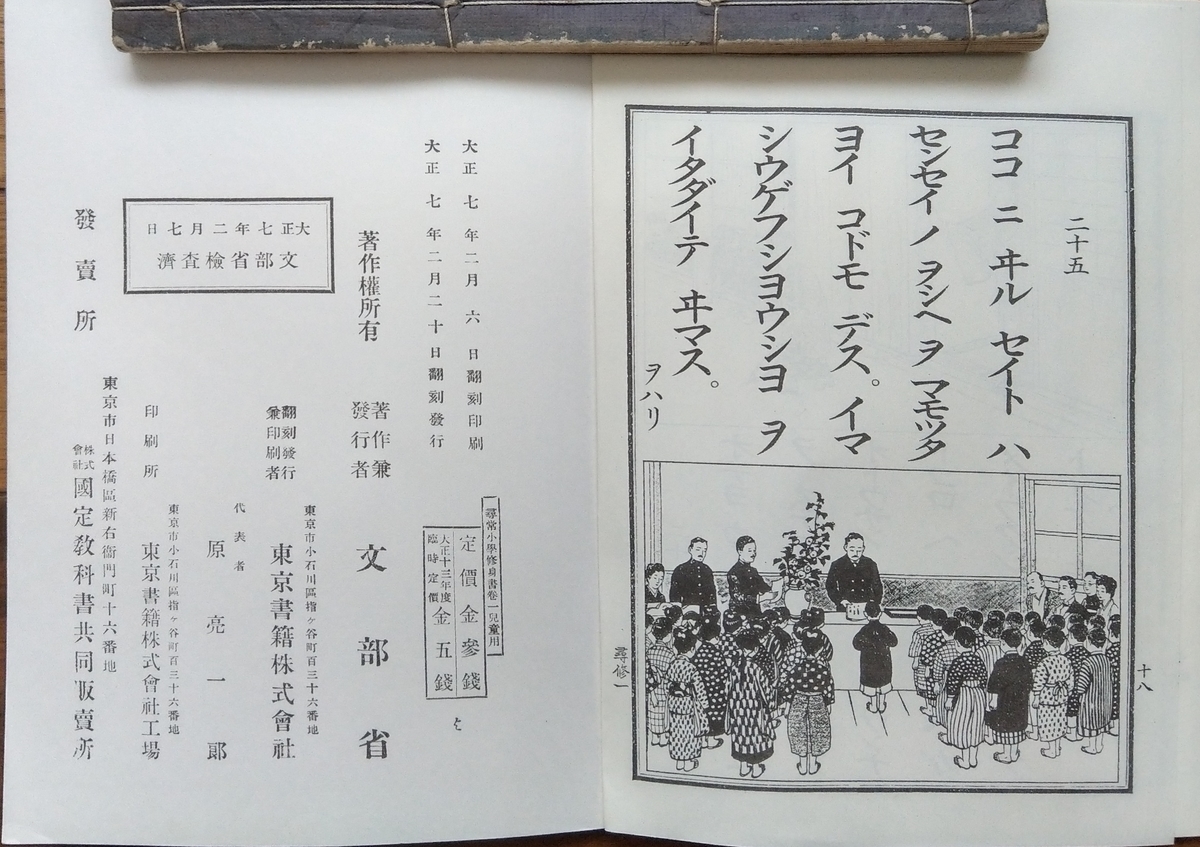 二十五
ココ ニ ヰル セイト ハ
センセイ ノ ヲシヘ ヲ マモツタ
ヨイ コドモ デス。イマ
シウゲフシヨウシヨ ヲ
イタダイテ ヰマス。
ヲハリ
十八
尋修一
大正七年二月六日翻刻印刷
大正七年二月二十日翻刻發行
尋常小學修身書卷一兒童用
定價金參錢
大正十三年度臨時定價
金五錢
著作權所有
著作兼發行者
文部省
翻刻發行兼印刷者
東京市小石川區指ヶ谷町百三十六番地
東京書籍株式會社
代表者
原亮一郎
大正七年二月七日
文部省檢査濟
印刷所
東京市小石川區指ヶ谷町百三十六番地
東京書籍株式會社工場
發賣所
東京市日本橋區新右衞門町十六番地
株式會社
國定敎科書共同販賣所